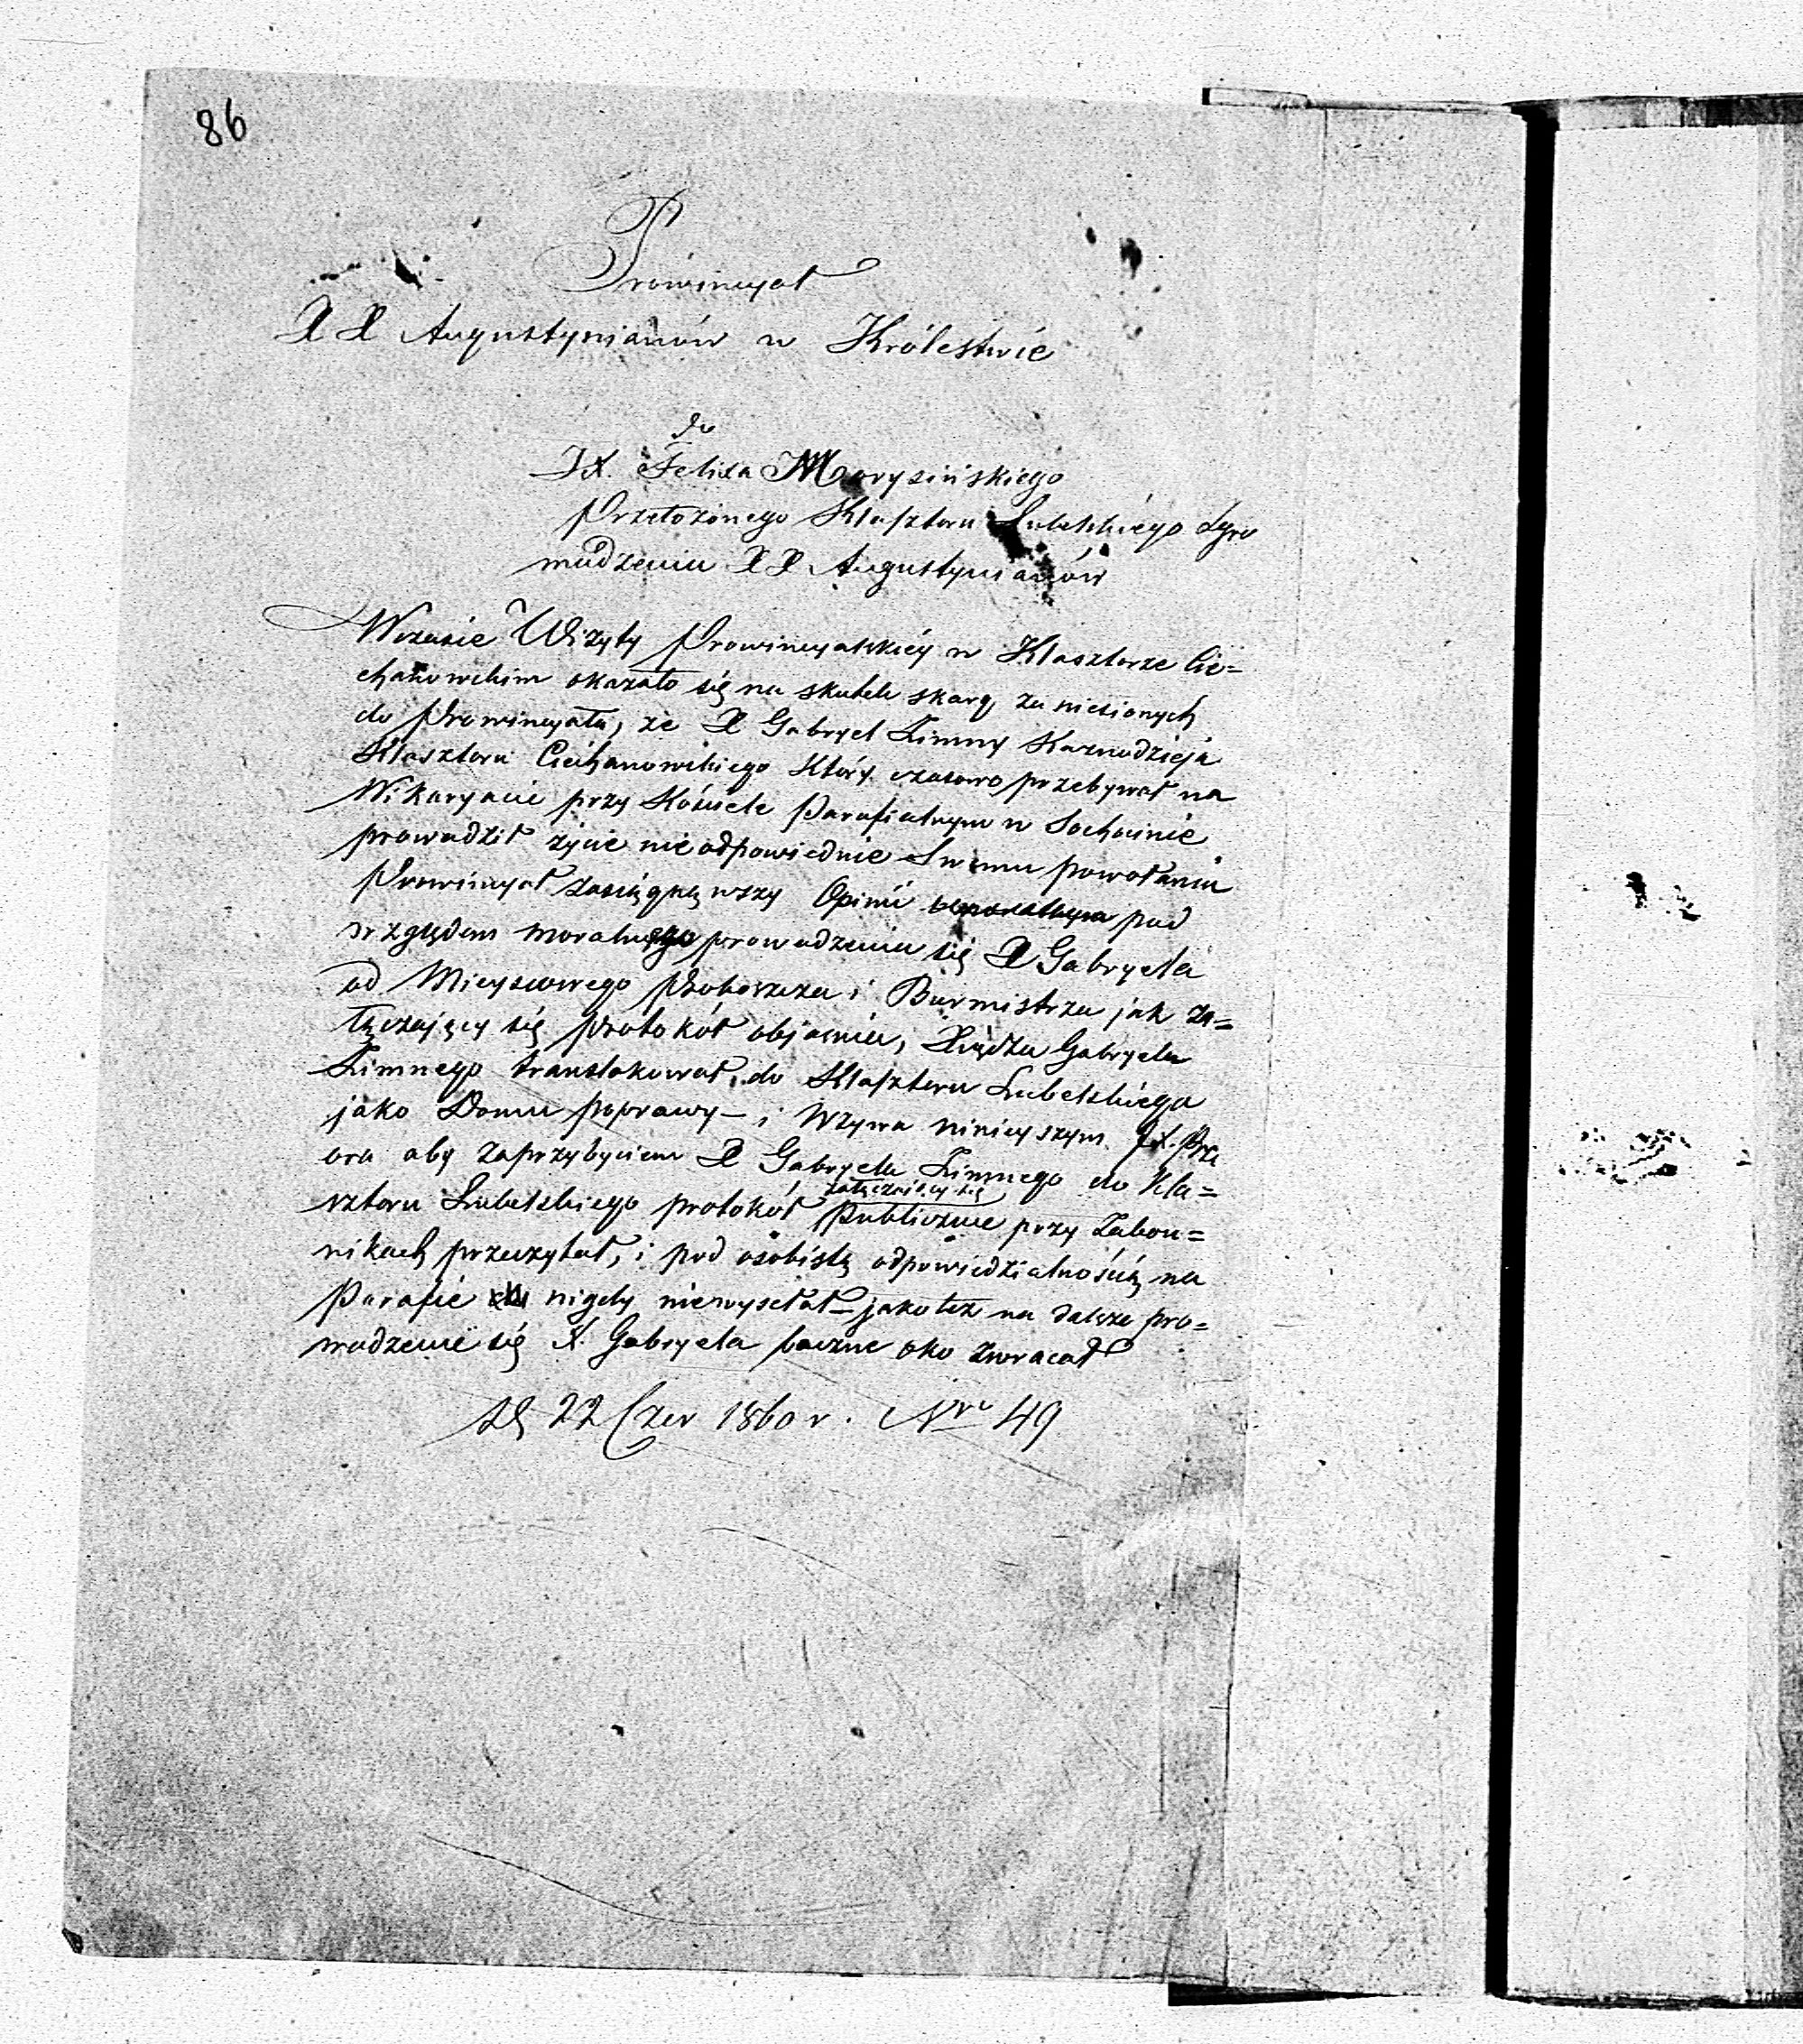 86
Prowincyał
XX Augustynianów w Królestwie
Do
JX. Felixa Marysińskiego
Przełożonego Klasztoru Lubelskiego Zgro
madzenia XX Augustynianów
Wczasie Wizyty Prowincyalskiéy w Klasztorze Cie=
chanowskim okazało się na skutek skarg zaniesionych
do Prowincyała, że X Gabryel Zimny Kaznodzieja
Klasztoru Ciechanowskiego który czasowo przebywał na
Wikaryacie przy Kościele Parafialnym w Sochocinie
prowadził życie nieodpowiednie Swemu powołaniu
Prowincyał zasięgnęwszy Opinii pod
względem moralnego prowadzenia się X Gabryela
od Mieyscowego Proboszcza i Burmistrza jak za=
łączający się protokół objaśnia, Xiędza Gabryela
Zimnego translokował do Klasztoru Lubelskiego
jako Domu poprawy – i Wzywa ninieyszym JX. Prze
ora aby zaprzybyciem X Gabryela Zimnego do Kla=
sztoru Lubelskiego protokół załączaiący się Publicznie przy Zakon=
nikach przeczytał, i pod osobistą odpowiedzialnością na
Parafie nigdy niewysełał – jako też na dalsze pro=
wadzenie się X. Gabryela baczne oko zwracał
22 Czer 1860 r. Nro 49